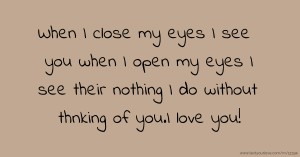 When I close my eyes I see
you when I open my eyes I
see their nothing I do without
thnking of you.I love you!